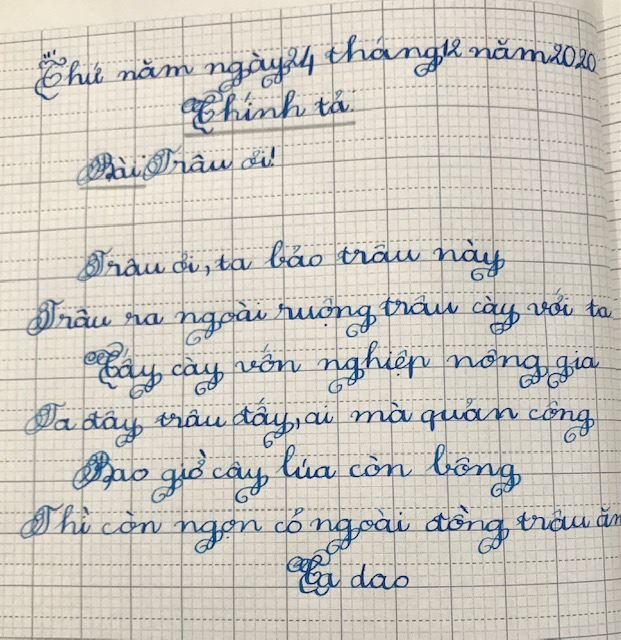 Thứ năm ngày 24 tháng 12 năm 2020
Chính tả
Bài Trâu ơi!
Trâu ơi, ta bảo trâu này
Trâu ra ngoài ruộng trâu cày với ta
Cấy cày vốn nghiệp nông gia
Ta đây trâu đấy, ai mà quản công
Bao giờ cây lúa còn bông
Thì còn ngọn cỏ ngoài đồng trâu ăn
Ca dao